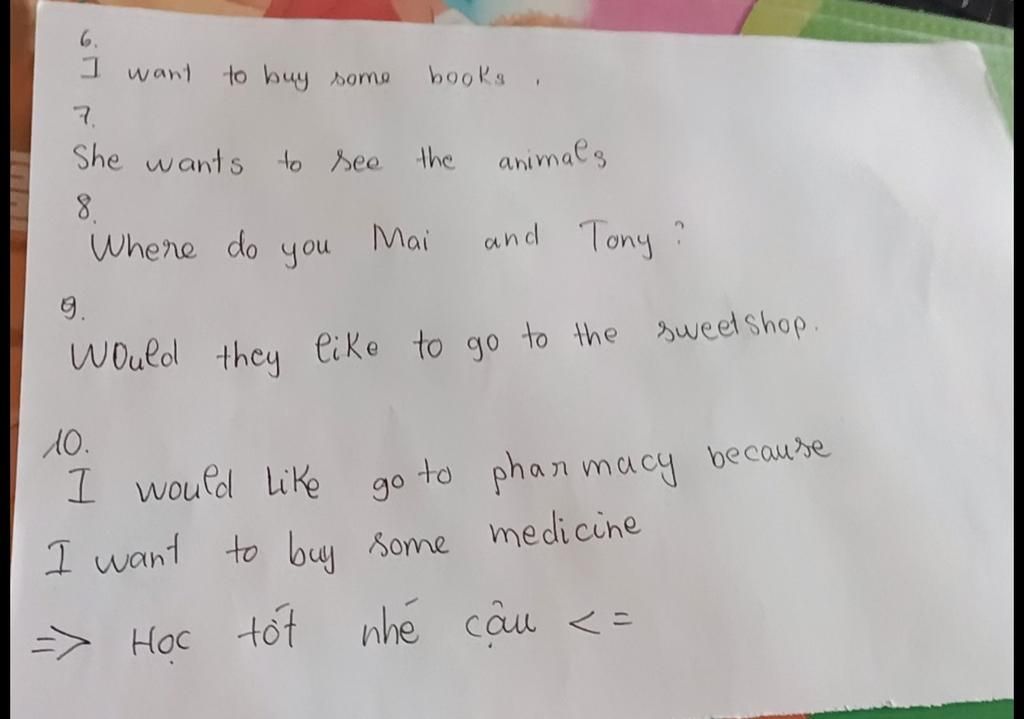 6.
I want to buy some books.
7.
She wants to see the animals
8.
Where do you Mai and Tony?
9.
Would they like to go to the sweetshop.
10.
I would like go to pharmacy because
I want to buy some medicine
=> Học tốt nhé cậu <=